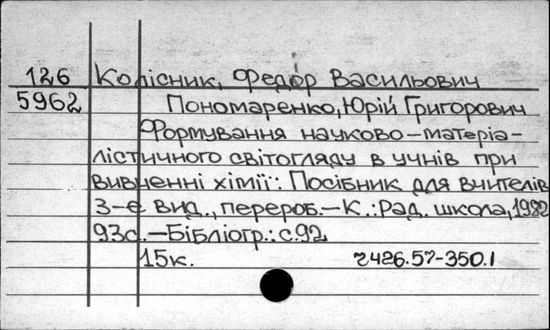 126 Колісник, Федор Васильович
5962 Пономаренко, Юрій Григорович
Формування науково-матеріа-
лістичного світогляду в учнів при
вивченні хімії: Посібник для вчителів
3-е вид., перероб.-К.:Рад. школа, 1982
93с.-Бібліогр.: с.92
15к. 2426.57-350.1